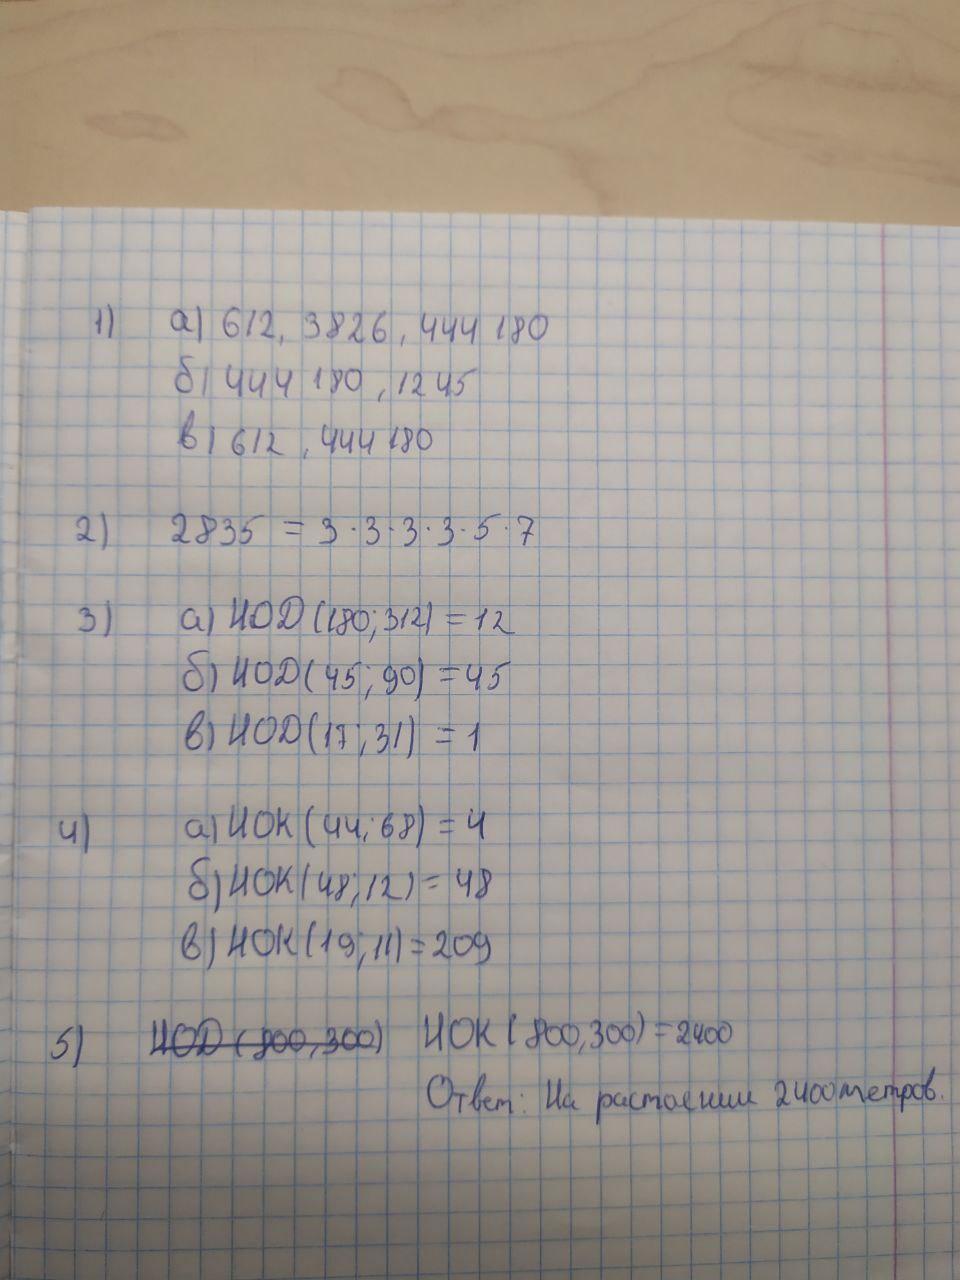 1) а) 612, 3826, 444 180
б) 444 180, 1245
в) 612, 444 180
2) 2835 = 3·3·3·3·5·7
3) а) НОД (180; 312) = 12
б) НОД (45; 90) = 45
в) НОД (17; 31) = 1
4) а) НОК (44; 68) = 4
б) НОК (48; 12) = 48
в) НОК (19; 11) = 209
5) НОД (800, 300) НОК (800, 300) = 2400
Ответ: На растоении 2400 метров.